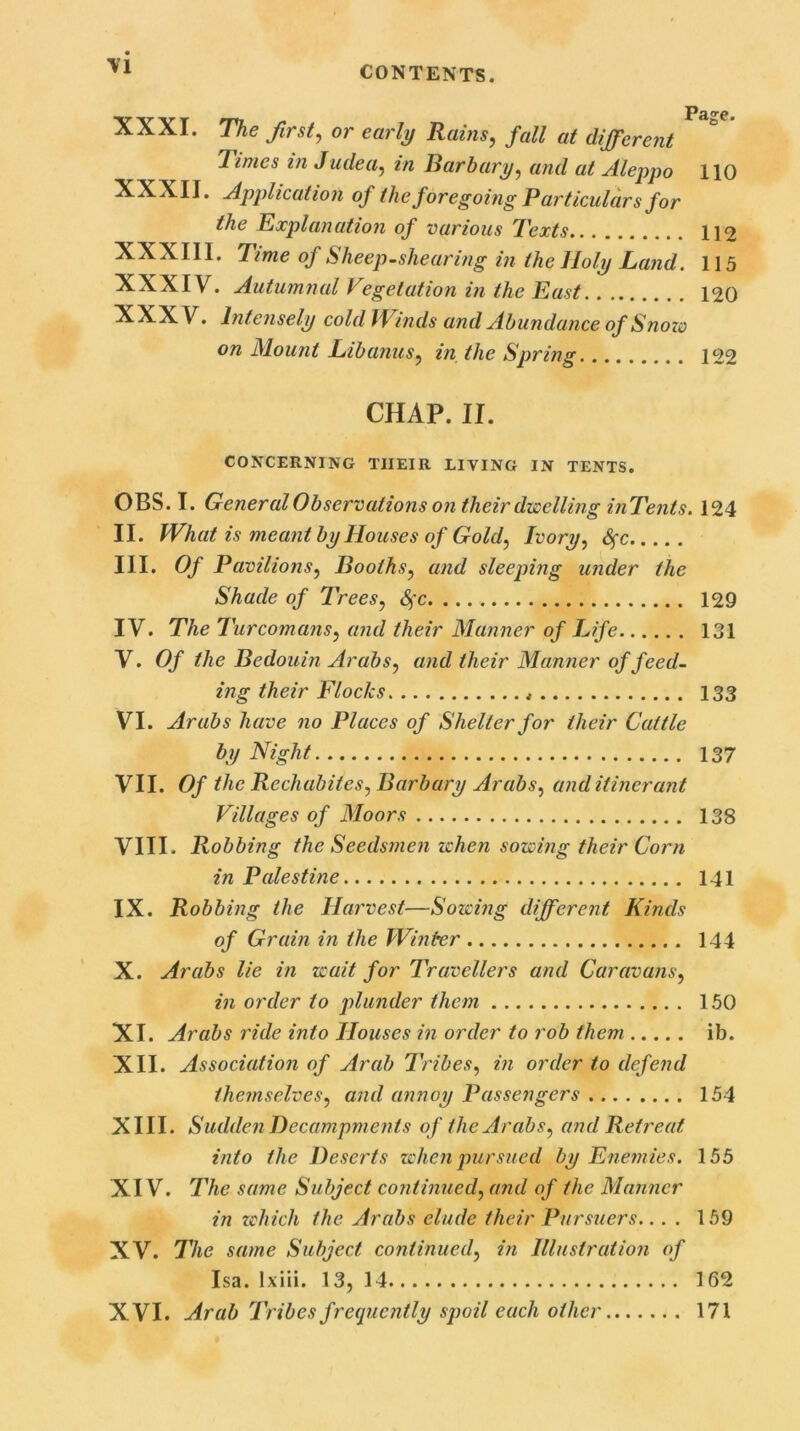 vi
CONTENTS.
Page.
XXXI. The first, or early Rains, fall at different
Times in Judea, in Barbary, and at Aleppo 110
XXXII. Application of the foregoing Particulars for
the Explanation of various Texts........... 112
XXXIII. Time of Sheep-shearing in the Holy Land. 115
XXXIV. Autumnal Vegetation in the East.......... 120
XXXV. Intensely cold Winds and Abundance of Snow
on Mount Libanus, in the Spring.......... 122
CHAP. II.
CONCERNING THEIR LIVING IN TENTS.
OBS. I. General Observations on their dwelling in Tents. 124
II. What is meant by Houses of Gold, Ivory, &c.....
III. Of Pavilions, Booths, and sleeping under the
Shade of Trees, &c..................... 129
IV. The Turcomans, and their Manner of Life...... 131
V. Of the Bedouin Arabs, and their Manner of feed-
ing their Flocks......................... 133
VI. Arabs have no Places of Shelter for their Cattle
by Night.............................. 137
VII. Of the Rechabites, Barbary Arabs, and itinerant
Villages of Moors...................... 138
VIII. Robbing the Seedsmen when sowing their Corn
in Palestine............................ 141
IX. Robbing the Harvest—Sowing different Kinds
of Grain in the Winter.................. 144
X. Arabs lie in wait for Travellers and Caravans,
in order to plunder them................ 150
XI. Arabs ride into Houses in order to rob them..... ib.
XII. Association of Arab Tribes, in order to defend
themselves, and annoy Passengers......... 154
XIII. Sudden Decampments of the Arabs, and Retreat
into the Deserts when pursued by Enemies. 155
XIV. The same Subject continued, and of the Manner
in which the Arabs elude their Pursuers.... 159
XV. The same Subject continued, in Illustration of
Isa. lxiii. 13, 14......................... 162
XVI. Arab Tribes frequently spoil each other........ 171